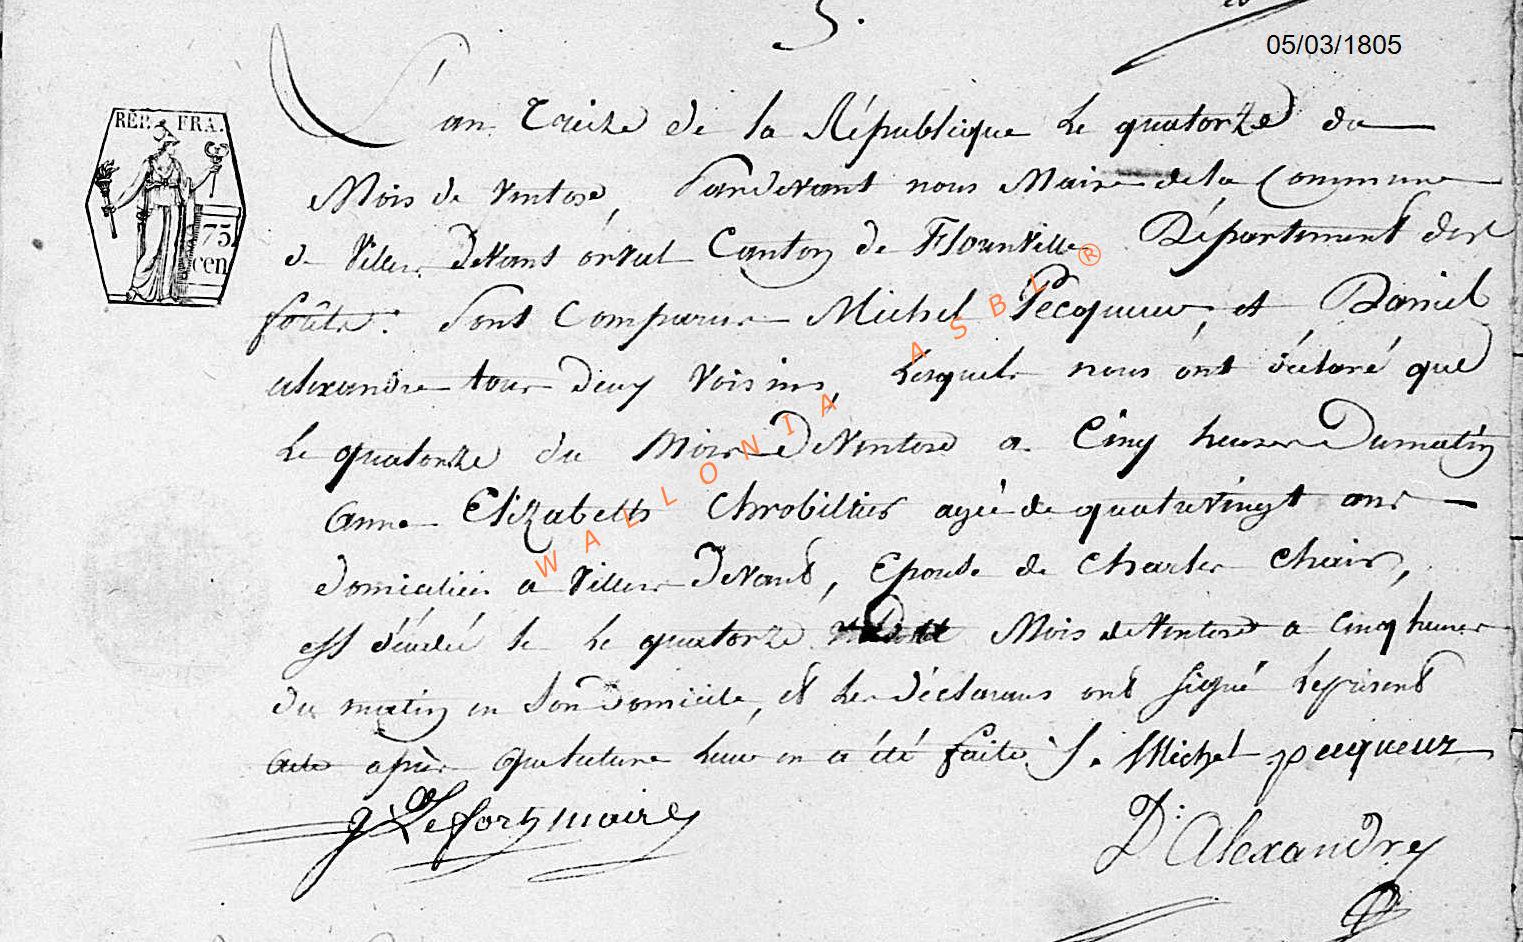 5.
05/03/1805
RÉP. FRA.
75
cen
L'an Treize de la République le quatorze du
Mois de Ventose, Pardevant nous Maire de la Commune
de Viller devant orval Canton de Florenville Département des
foréts. Sont Comparus Michel Pecqueur, et Daniel
alexandre tous deux Voisins, lesquels nous ont déclaré que
le quatorze du Mois de Ventose a Cinq heures Du matin
Anne Elizabeth Chrobiltus agée de quatrevingt ans
domiciliée a Viller Devant, Epouse de Charles Chair,
est décédé le le quatorze Mois de Ventose a Cinq heures
du matin en Son Domicile, et les déclarans ont signé le présent
acte après que lecture leur en a été faite. S. Michel pecqueur
J Lefort maire
D: Alexandre
WALLONIA ASBL ®